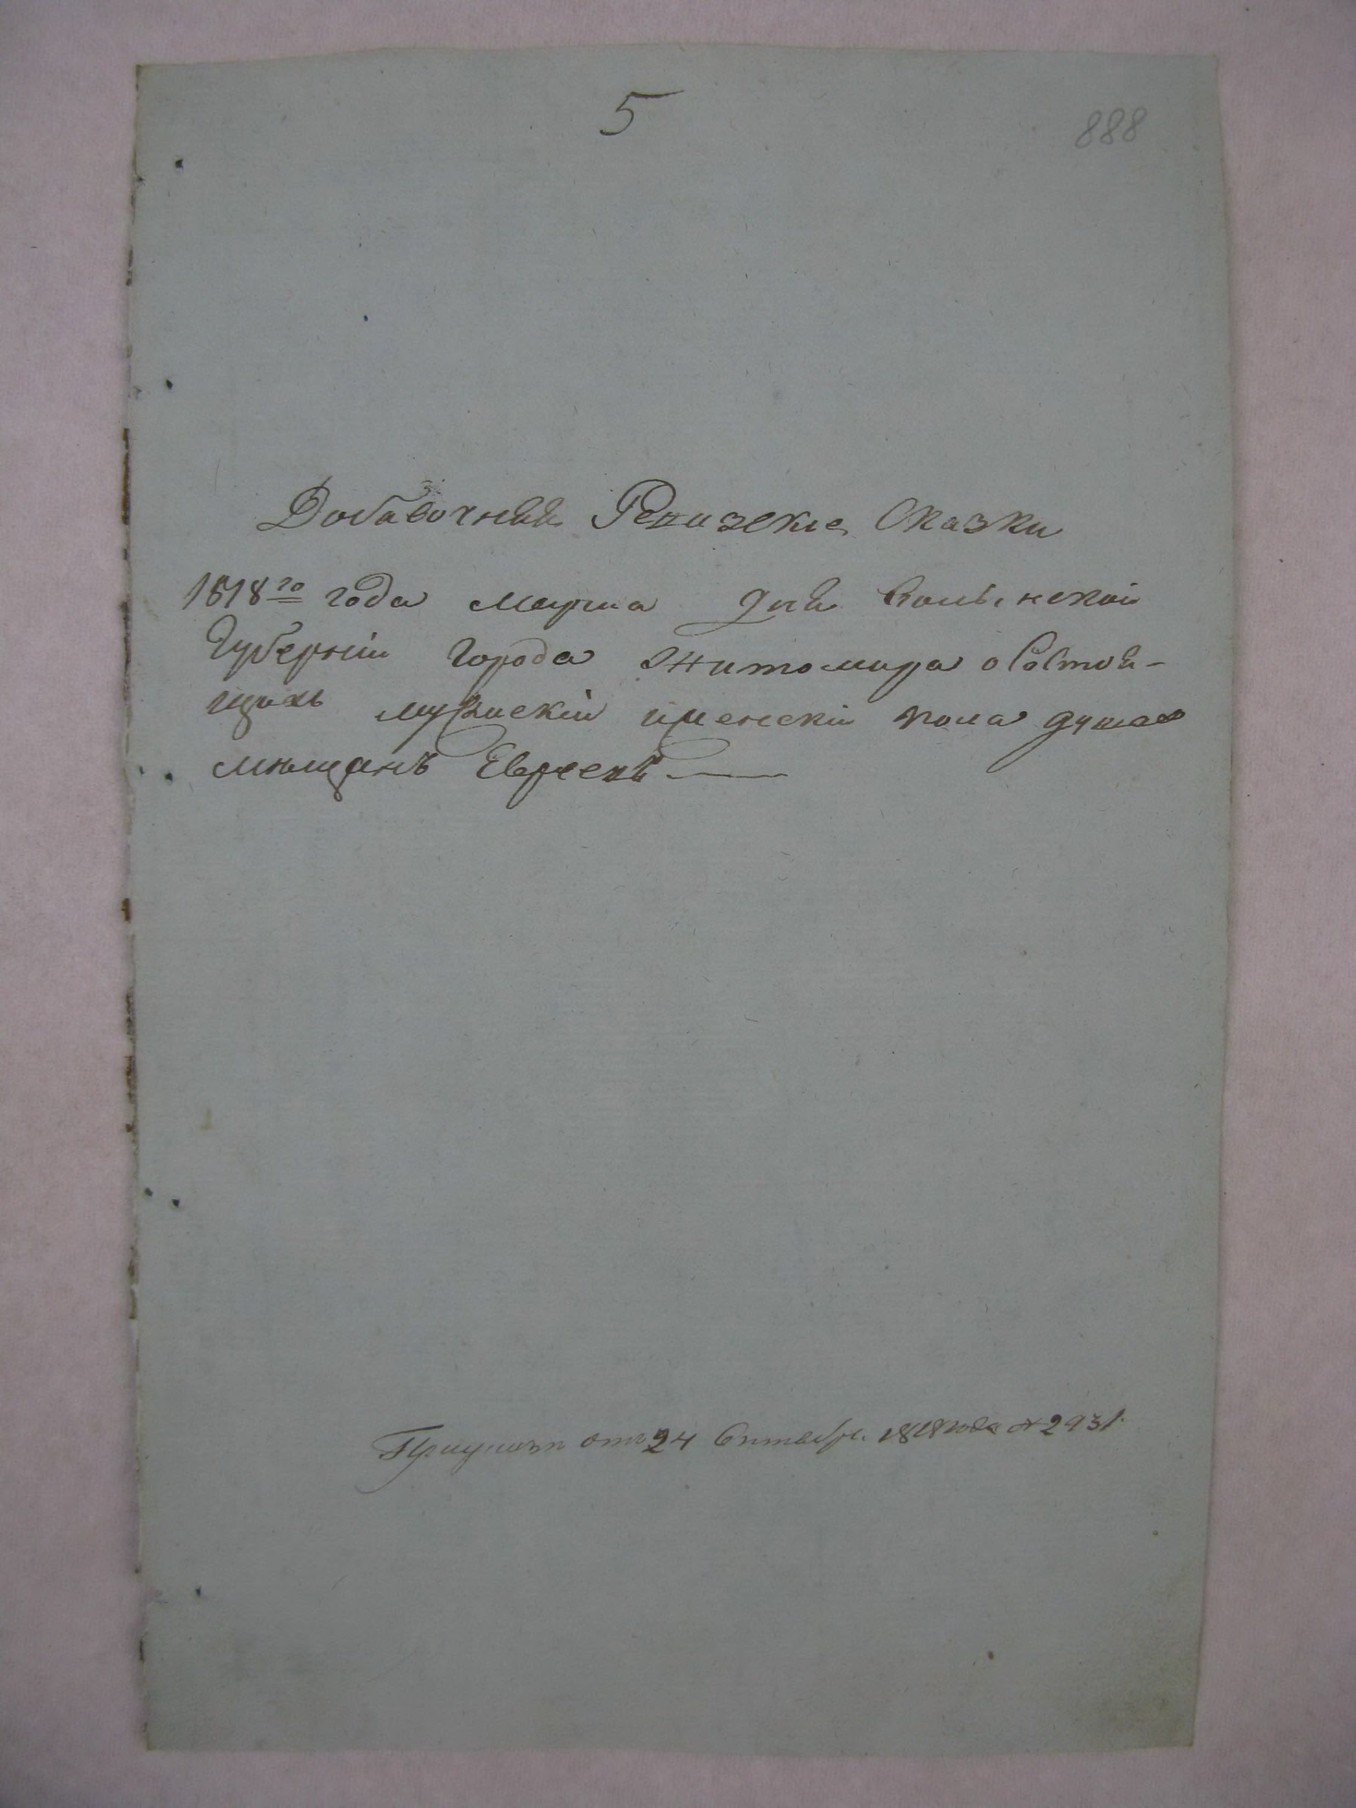 5
888
Добавочныя Ревизские Сказки
1818го года марта дня Волынской
Губернии Города Житомира о Состоя-
щихъ мужиский и женский пола душах
мещанъ Евреехъ
отъ 24 Октября 1818 года № 2931